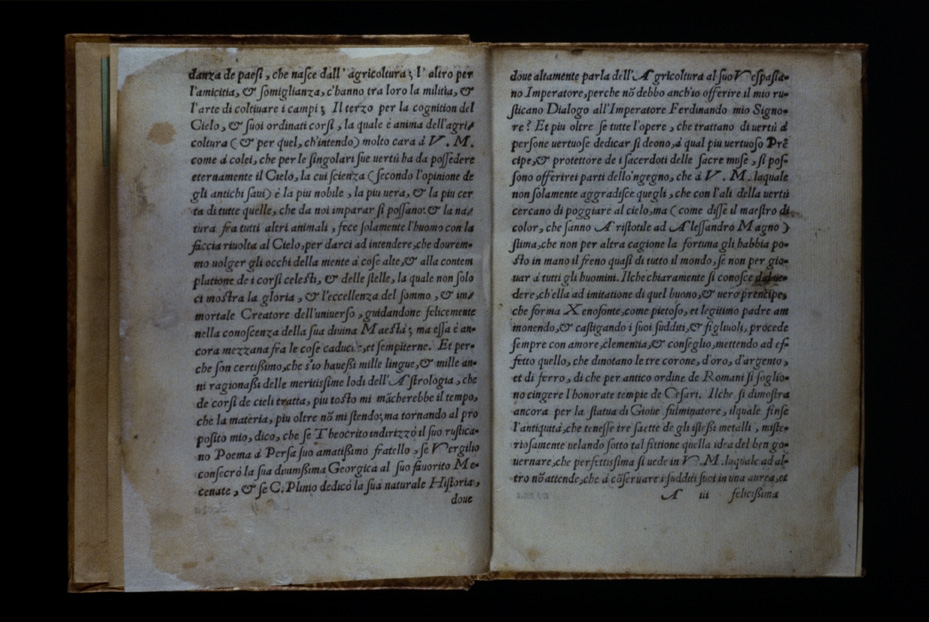 danza de paesi, che nasce dall'agricoltura; l'altro per
l'amicitia, & somiglianza, c'hanno tra loro la militia, &
l'arte di coltiuare i campi; Il terzo per la cognition del
Cielo, & suoi ordinati corsi, la quale è anima dell'agri/
coltura (& per quel, ch'intendo) molto cara à V. M.
come à colei, che per le singolari sue uertù ha da possedere
eternamente il Cielo, la cui scienza (secondo l'opinione de
gli antichi saui) è la piu nobile, la piu uera, & la piu cer
ta di tutte quelle, che da noi imparar si possano: & la na/
tura fra tutti altri animali, fece solamente l'huomo con la
faccia riuolta al Cielo, per darci ad intendere, che dourem-
mo uolger gli occhi della mente à cose alte, & alla contem
platione de i corsi celesti, & delle stelle, la quale non solo
ci mostra la gloria, & l'eccellenza del sommo, & im/
mortale Creatore dell'uniuerso, guidandone felicemente
nella conoscenza della sua diuina Maestà; ma essa è an-
cora mezzana fra le cose caduce, et sempiterne. Et per-
che son certissimo, che s'io hauessi mille lingue, & mille an-
ni ragionassi delle meritissime lodi dell'Astrologia, che
de corsi de cieli tratta, piu tosto mi mācherebbe il tempo,
chè la materia, piu oltre nō mi stendo; ma tornando al pro
posito mio, dico, che se Theocrito indirizzò il suo rustica-
no Poema à Persa suo amatissimo fratello, se Vergilio
consecrò la sua diuinissima Georgica al suo fauorito Me-
cenate, & se C. Plinio dedicò la sua naturale Historia,
doue
doue altamente parla dell'Agricoltura al suo Vespasia-
no Imperatore, perche nō debbo anch'io offerire il mio ru-
sticano Dialogo all'Imperatore Ferdinando mio Signo-
re? Et piu oltre se tutte l'opere, che trattano di uertù à
persone uertuose dedicar si deono, à qual piu uertuoso Prē
cipe, & protettore de i sacerdoti delle sacre muse, si pos-
sono offerire i parti dello'ngegno, che à V. M. laquale
non solamente aggradisce quegli, che con l'ali della uertù
cercano di poggiare al cielo, ma (come disse il maestro di
color, che sanno Aristotile ad Alessandro Magno)
stima, che non per altra cagione la fortuna gli habbia po-
sto in mano il freno quasi di tutto il mondo, se non per gio-
uar à tutti gli huomini. Ilche chiaramente si conosce dal ue-
dere, ch'ella ad imitatione di quel buono, & uero prencipe,
che forma Xenofonte, come pietoso, et legitimo padre am
monendo, & castigando i suoi sudditi, & figliuoli, procede
sempre con amore, clementia, & conseglio, mettendo ad ef-
fetto quello, che dinotano le tre corone, d'oro, d'argento,
et di ferro, di che per antico ordine de Romani si soglio-
no cingere l'honorate tempie de Cesari. Ilche si dimostra
ancora per la statua di Gioue fulminatore, ilquale finse
l'antiquità, che tenesse tre saette de gli istessi metalli, miste-
riosamente uelando sotto tal fittione quella idea del ben go-
uernare, che perfettissima si uede in V. M. laquale ad al-
tro nō attende, che à cōseruare i sudditi suoi in una aurea, et
A iii felicissima